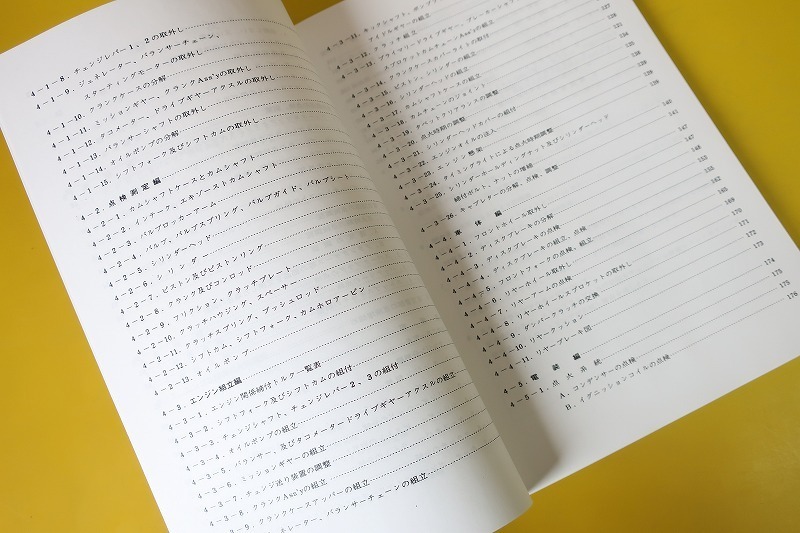 4－1－8．チェンジレバー1，2の取外し
4－1－9．ジェネレーター、バランサーチェーン、
スターティングモーターの取外し
4－1－10．クランクケースの分解
4－1－11．ミッションギヤー、クランクAss'yの取外し
4－1－12．タコメーター、ドライブギヤーアクスルの取外し
4－1－13．バランサーシャフトの取外し
4－1－14．オイルポンプの分解
4－1－15．シフトフォーク及びシフトカムの取外し
4－2．点検測定編
4－2－1．カムシャフトケースとカムシャフト
4－2－2．インテーク、エキゾーストカムシャフト
4－2－3．バルブロッカーアーム
4－2－4．バルブ、バルブスプリング、バルブガイド、バルブシート
4－2－5．シリンダーヘッド
4－2－6．シリンダー
4－2－7．ピストン及びピストンリング
4－2－8．クランク及びコンロッド
4－2－9．フリクション、クラッチプレート
4－2－10．クラッチハウジング、スペーサー
4－2－11．クラッチスプリング、プッシュロッド
4－2－12．シフトカム、シフトフォーク、カムホロアーピン
4－2－13．オイルポンプ
4－3．エンジン組立編
4－3－1．エンジン関係締付トルク一覧表
4－3－2．シフトフォーク及びシフトカムの組付
4－3－3．チェンジシャフト、チェンジレバー2，3の組付
4－3－4．オイルポンプの組立
4－3－5．バランサー、及びタコメータードライブギヤーアクスルの組立
4－3－6．ミッションギヤーの組立
4－3－7．チェンジ送り装置の調整
4－3－8．クランクAss'yの組立
4－3－9．クランクケースアッパーの組立
ネレーター、バランサーチェーンの組立
4－3－11．キックシャフト、
アイドルギヤーの組立
4－3－12．クラッチ組立
4－3－13．プライマリードライブギヤー、
スプロケットカムチェーンAss'yの組立
クランクケースカバーライトの取付
4－3－15．ピストン、シリンダーの組立
4－3－16．シリンダーヘッドの組立
4－3－17．カムシャフトケースの組立
4－3－18．カムチェーンのジョイント
4－3－19．タペットクリアランスの調整
4－3－20．点火時期の調整
4－3－21．シリンダーヘッドカバーの組付
4－3－22．エンジンオイルの注入 140
4－3－23．エンジン懸架 141
4－3－24．タイミングライトによる点火時期調整
4－3－25．シリンダーホールディングナット及びシリンダーヘッド
締付ボルト、ナットの増締 147
4－3－26．キャブレターの分解、点検、調整 147
4－4．車体編
4－4－1．フロントホイール取外し
4－4－2．ディスクブレーキの分解
4－4－3．ディスクブレーキの点検
4－4－4．ディスクブレーキの組立、点検 165
4－4－5．フロントフォークの点検、組立 169
4－4－6．リヤーホイール取外し 170
4－4－7．リヤーアームの点検 171
4－4－8．リヤーホイールスプロケットの取外し 172
4－4－9．ダンパークラッチの交換 173
4－4－10．リヤークッション 174
4－4－11．リヤーブレーキ図 175
4－5．電装編
4－5－1．点火系統 176
A．コンデンサーの点検
B．イグニッションコイルの点検